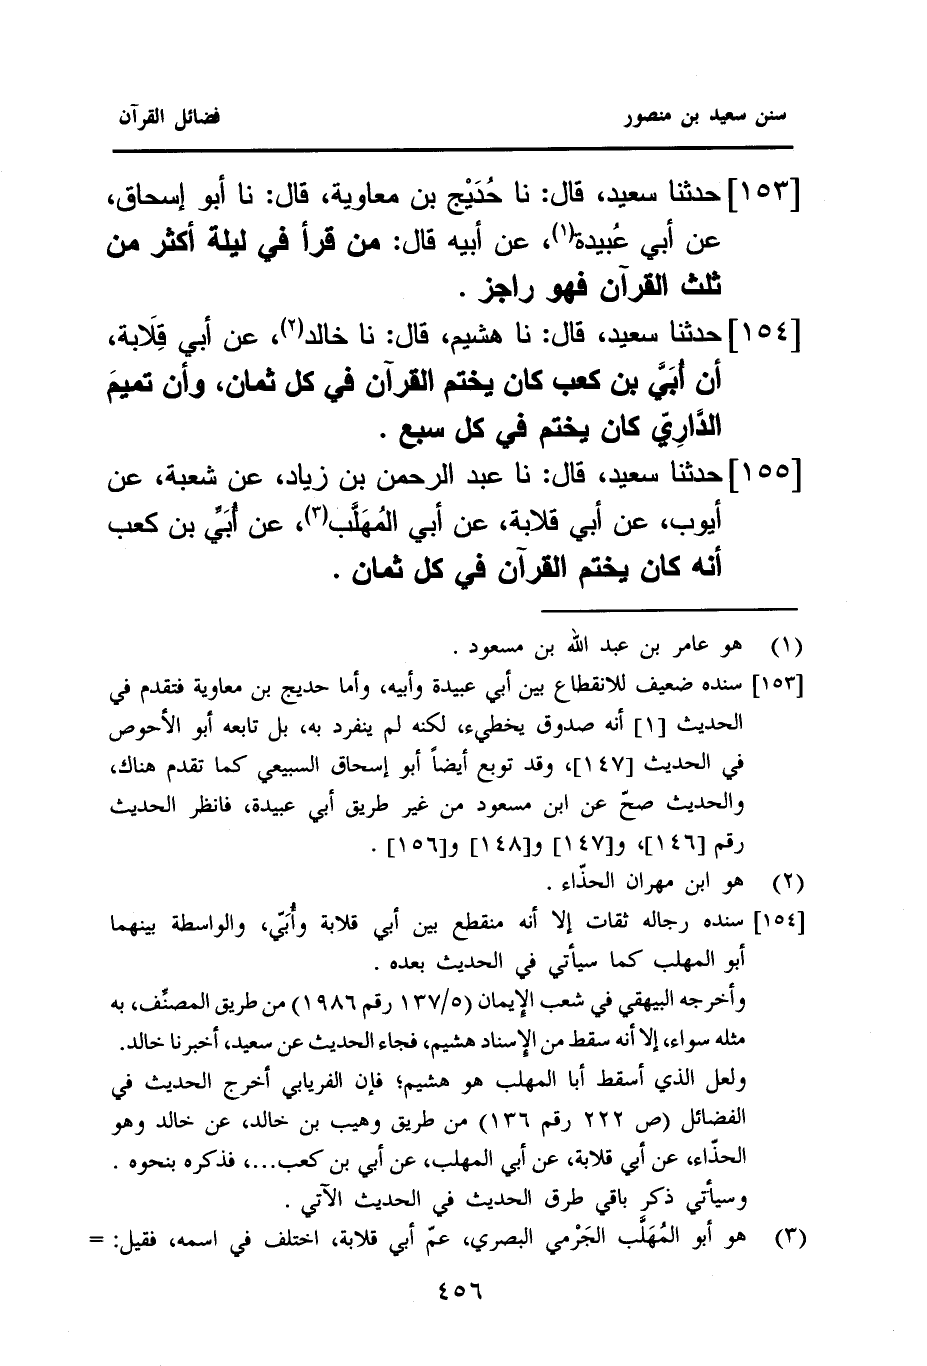 سنن سعيد بن منصور
فضائل القرآن
[١٥٣] حدثنا سعيد، قال: نا حُدَيْج بن معاوية، قال: نا أبو إسحاق،
عن أبي عُبيدة(١)، عن أبيه قال: من قرأ في ليلة أكثر من
ثلث القرآن فهو راجز .
[١٥٤] حدثنا سعيد، قال: نا هشيم، قال: نا خالد(٢)، عن أبي قِلَابة،
أن أُبَيَّ بن كعب كان يختم القرآن في كل ثمان، وأن تميمَ
الدَّارِيّ كان يختم في كل سبع .
[١٥٥] حدثنا سعيد، قال: نا عبد الرحمن بن زياد، عن شعبة، عن
أيوب، عن أبي قلابة، عن أبي المُهَلَّب(٣)، عن أُبَيِّ بن كعب
أنه كان يختم القرآن في كل ثمان .
(١) هو عامر بن عبد الله بن مسعود .
[١٥٣] سنده ضعيف للانقطاع بين أبي عبيدة وأبيه، وأما حديج بن معاوية فتقدم في
الحديث [١] أنه صدوق يخطيء، لكنه لم ينفرد به، بل تابعه أبو الأحوص
في الحديث [١٤٧]، وقد توبع أيضاً أبو إسحاق السبيعي كما تقدم هناك،
والحديث صحّ عن ابن مسعود من غير طريق أبي عبيدة، فانظر الحديث
رقم [١٤٦]، و[١٤٧] و[١٤٨] و[١٥٦] .
(٢) هو ابن مهران الحذّاء .
[١٥٤] سنده رجاله ثقات إلا أنه منقطع بين أبي قلابة وأُبَيّ، والواسطة بينهما
أبو المهلب كما سيأتي في الحديث بعده .
وأخرجه البيهقي في شعب الإيمان (٥/ ١٣٧ رقم ١٩٨٦) من طريق المصنِّف، به
مثله سواء، إلا أنه سقط من الإسناد هشيم، فجاء الحديث عن سعيد، أخبرنا خالد.
ولعل الذي أسقط أبا المهلب هو هشيم؛ فإن الفريابي أخرج الحديث في
الفضائل (ص ٢٢٢ رقم ١٣٦) من طريق وهيب بن خالد، عن خالد وهو
الحذّاء، عن أبي قلابة، عن أبي المهلب، عن أبي بن كعب...، فذكره بنحوه .
وسيأتي ذكر باقي طرق الحديث في الحديث الآتي .
(٣) هو أبو المُهَلَّب الجَرْمي البصري، عمّ أبي قلابة، اختلف في اسمه، فقيل: =
٤٥٦